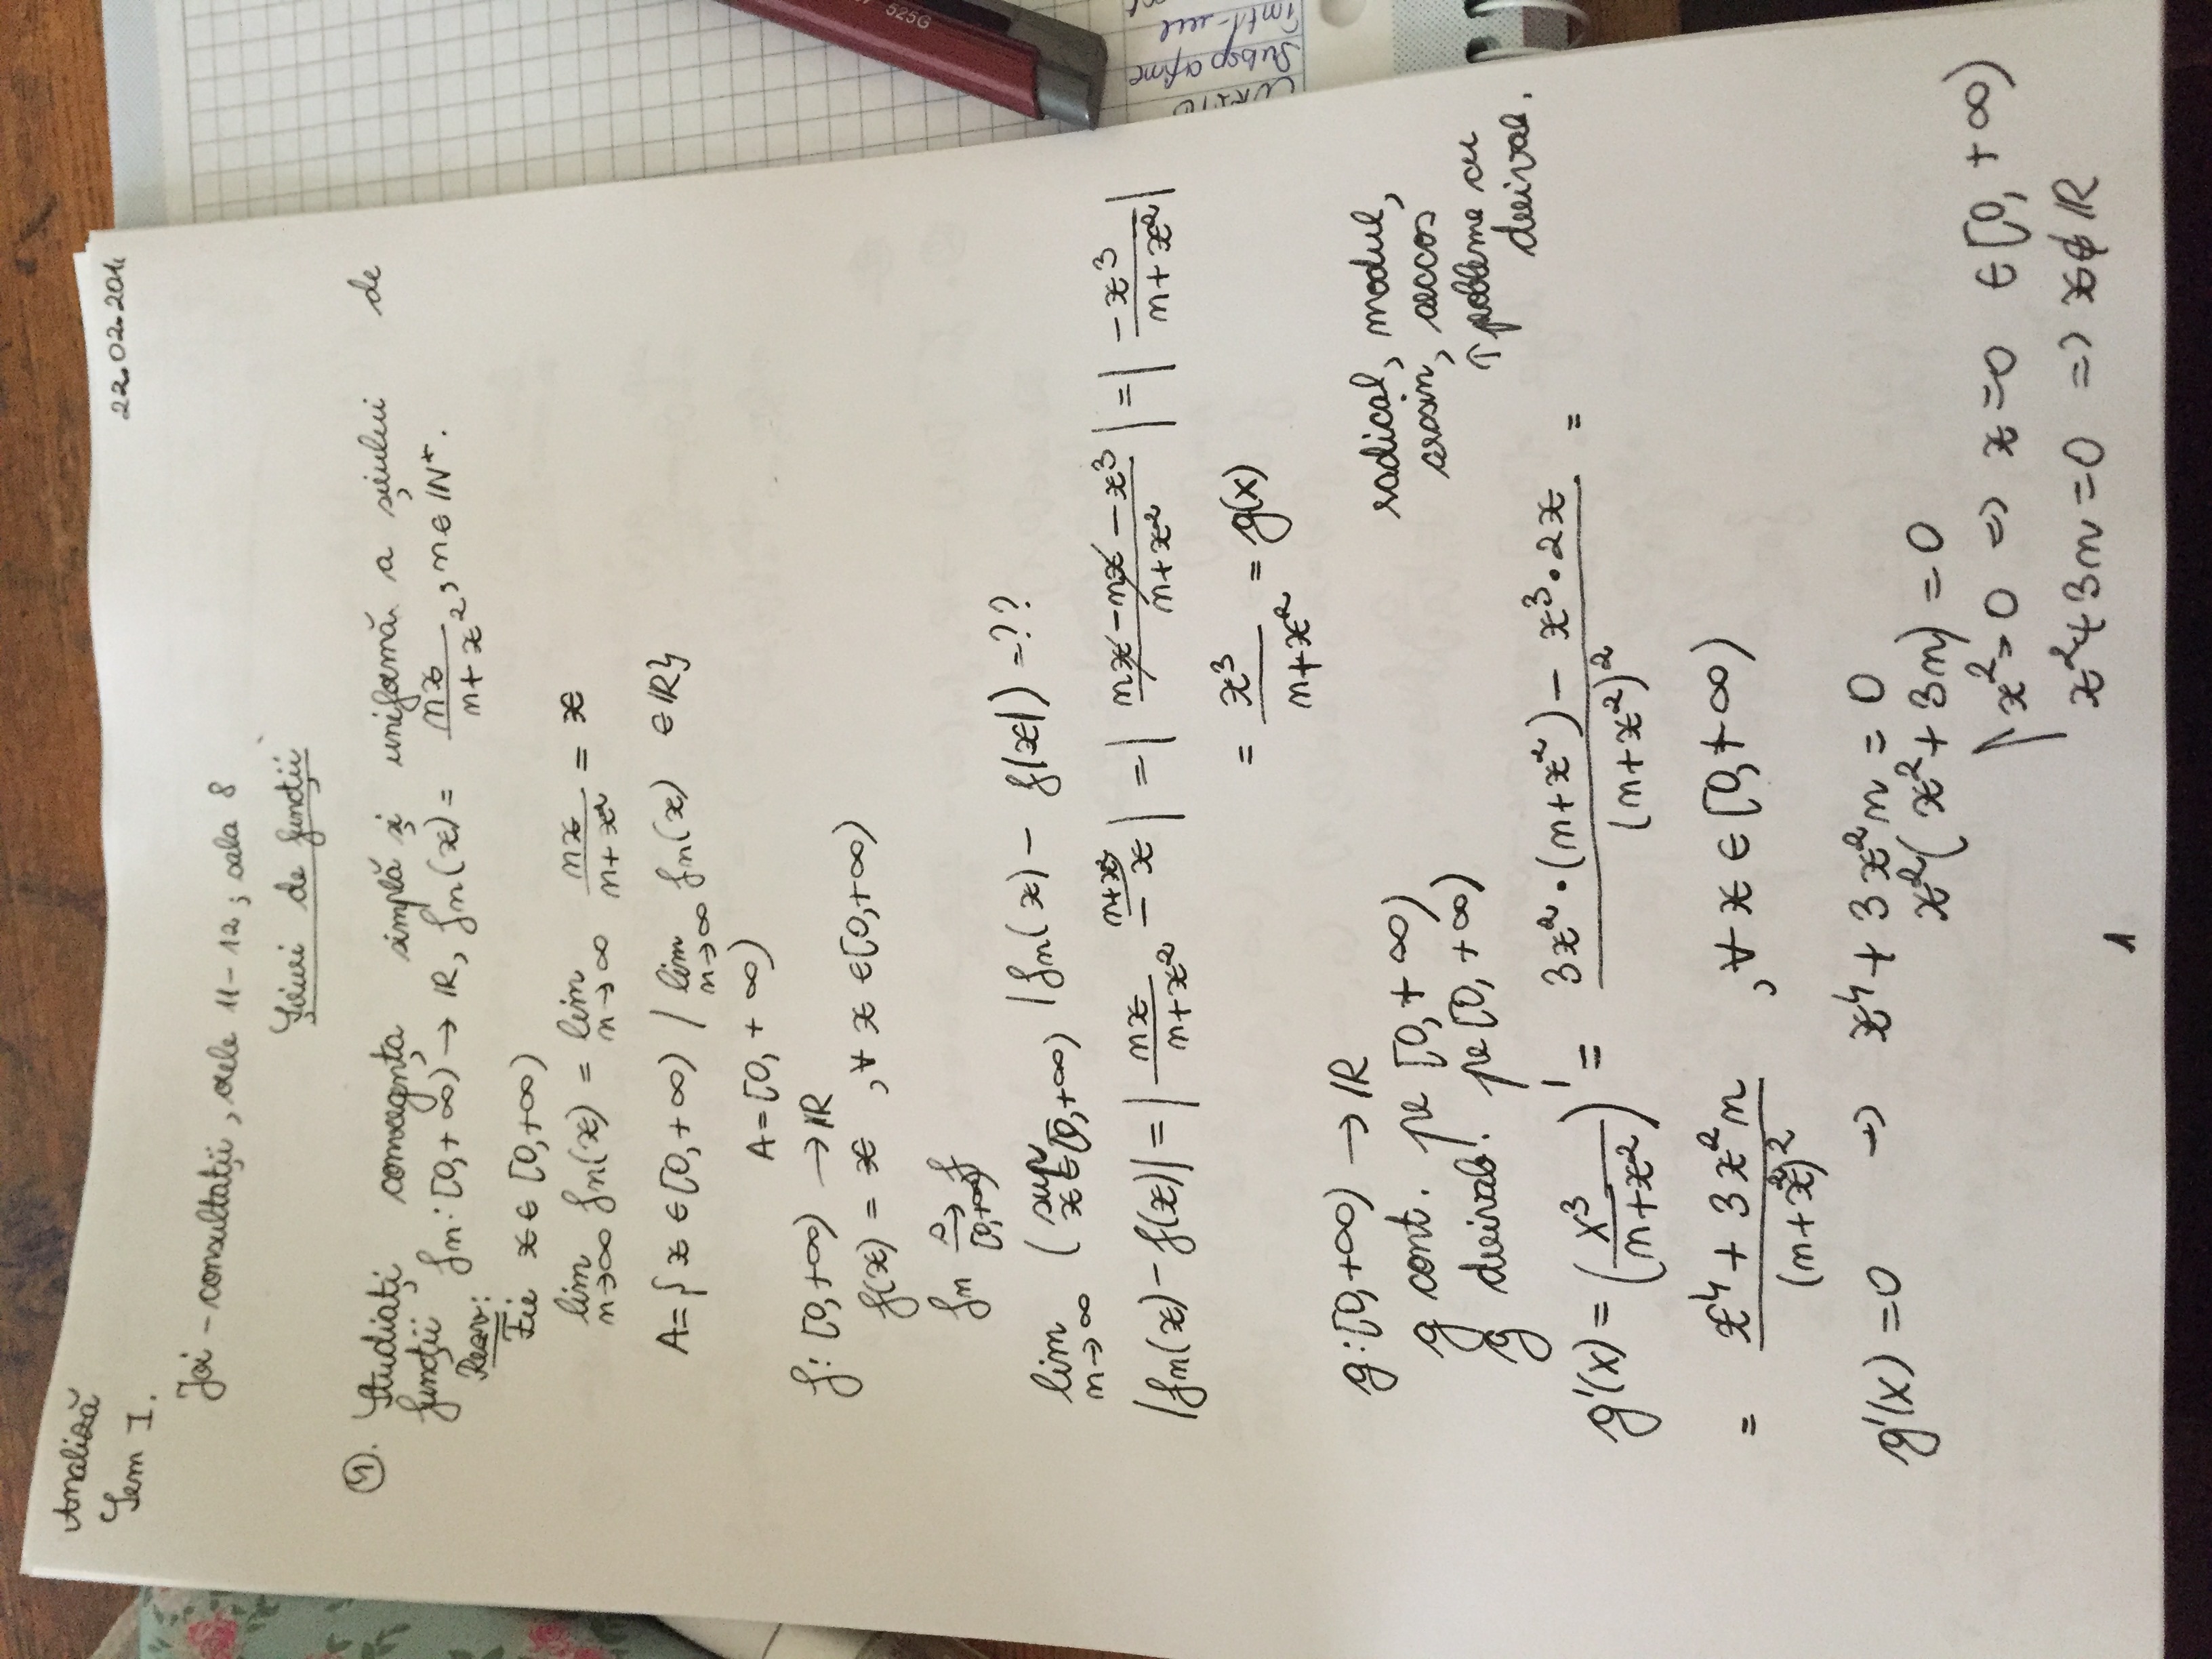 Analiză
Sem I.
22.02.201
Joi - consultații, orele 11-12; sala 8
Șiruri de funcții
1. Studiați convergența simplă și uniformă a șirului de
funcții fn: [0,+∞) → ℝ, fn(x) = nx / (n+x²), n ∈ ℕ*.
Rezv:
Fie x ∈ [0,+∞)
lim n→∞ fn(x) = lim n→∞ nx / (n+x²) = x
A = { x ∈ [0,+∞) / lim n→∞ fn(x) ∈ ℝ}
A = [0,+∞)
f: [0,+∞) → ℝ
f(x) = x, ∀ x ∈ [0,+∞)
fn →s [0,+∞) f
lim n→∞ ( sup x∈[0,+∞) |fn(x) - f(x)|) = ??
|fn(x) - f(x)| = | nx / (n+x²) - ⁿ⁺ˣ²⁾x | = | (nx - nx - x³) / (n+x²) | = | -x³ / (n+x²) |
= x³ / (n+x²) = g(x)
g: [0,+∞) → ℝ
g cont. pe [0,+∞)
g derivab. pe [0,+∞)
radical, modul,
arcsin, arccos
↑ probleme cu
derivab.
g'(x) = ( x³ / (n+x²) )' = (3x²·(n+x²) - x³·2x) / (n+x²)² =
= (x⁴ + 3x²n) / (n+x²)², ∀ x ∈ [0,+∞)
g'(x) = 0 ⇒ x⁴ + 3x²n = 0
x²( x² + 3n) = 0
x² = 0 ⇒ x = 0 ∈ [0,+∞)
x² + 3n = 0 ⇒ x ∉ ℝ
1
Subsp afine